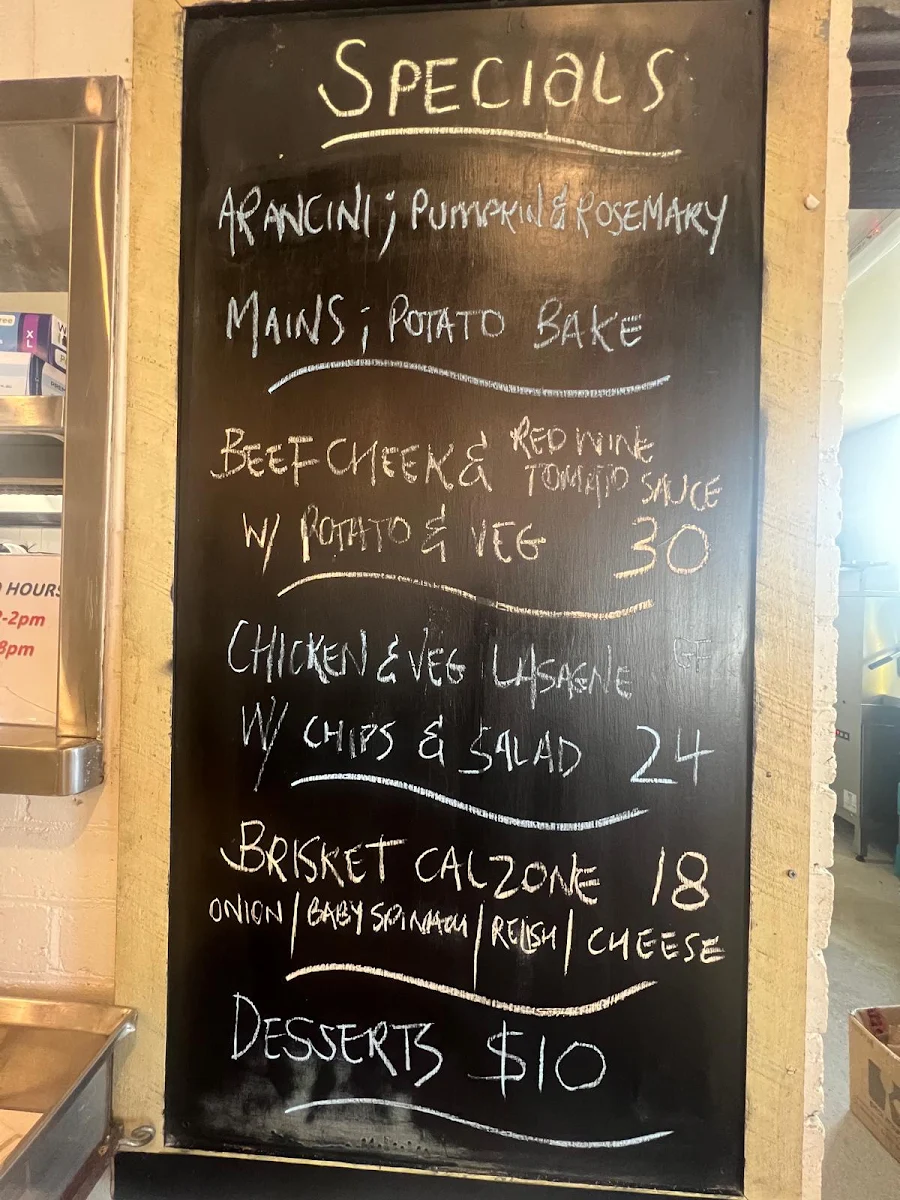 SPECIALS
ARANCINI; PUMPKIN & ROSEMARY
MAINS; POTATO BAKE
BEEF CHEEK & RED WINE
TOMATO SAUCE
W/ POTATO & VEG 30
CHICKEN & VEG LASAGNE GF
W/ CHIPS & SALAD 24
BRISKET CALZONE 18
ONION/BABY SPINACH/RELISH/CHEESE
DESSERTS $10
XL
HOURS
-2pm
8pm